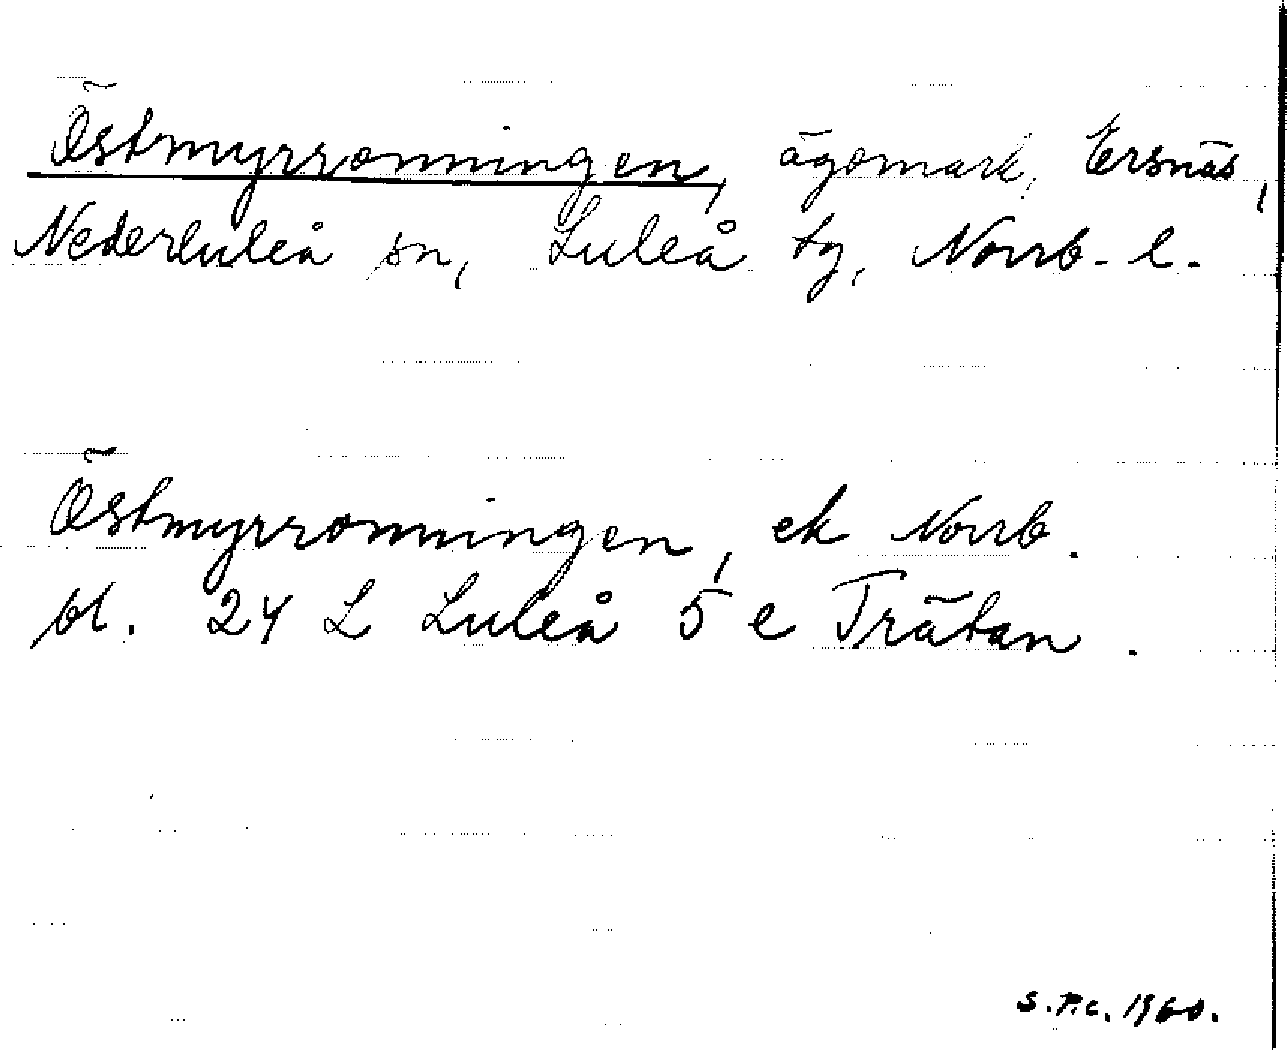 Östmyrronningen, ägomark, Ersnäs,
Nederluleå sn, Luleå tg, Norrb. l.
Östmyrronningen, ek Norrb.
bl. 24 L Luleå 5 e Trätan.
S.P.C. 1960.